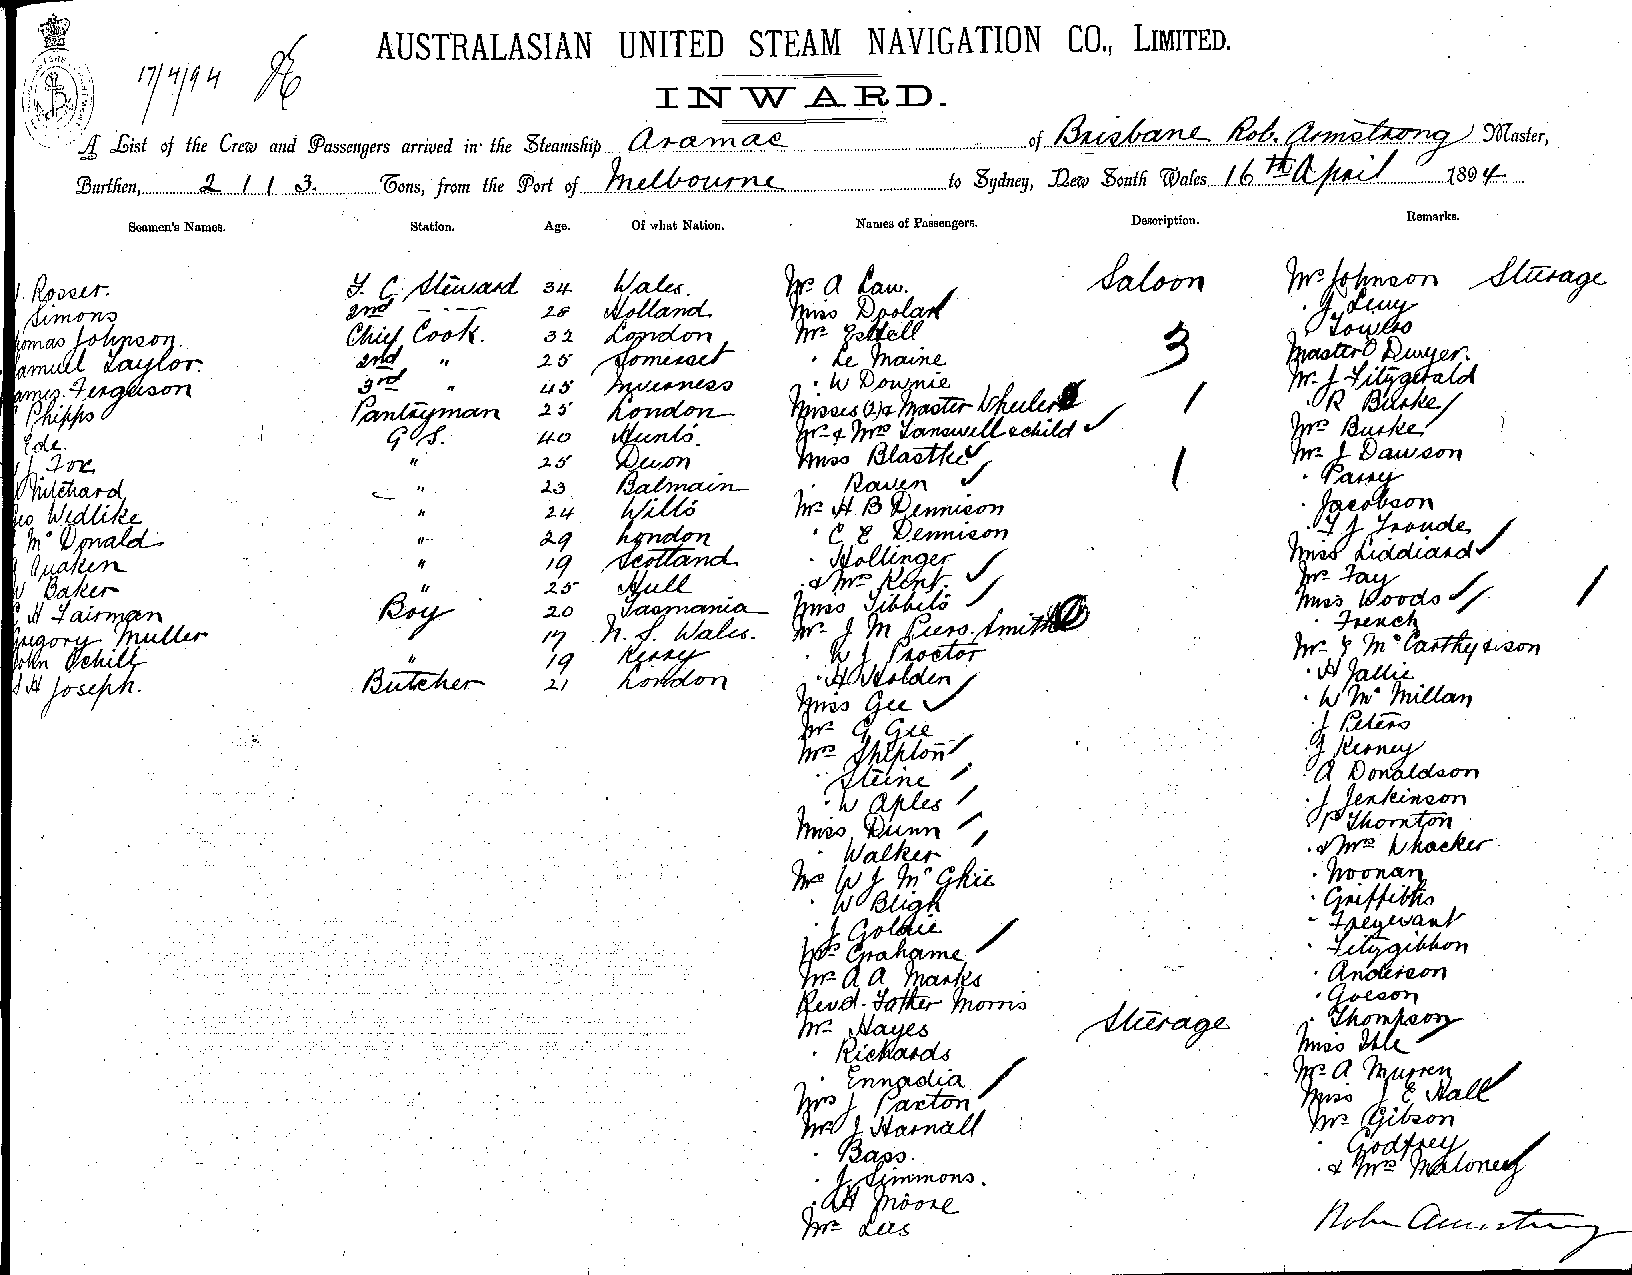 17/4/94
AUSTRALASIAN UNITED STEAM NAVIGATION CO., LIMITED.
INWARD.
A List of the Crew and Passengers arrived in the Steamship Aramac of Brisbane Rob. Armstrong Master,
Burthen, 2113. Tons, from the Port of Melbourne to Sydney, New South Wales 16th April 1894.
Seamen's Names. Station. Age. Of what Nation. Names of Passengers. Description. Remarks.
Rosser. F. C. Steward 34 Wales.
Simons 2nd 28 Holland
omas Johnson. Chief Cook. 32 London
amuel Taylor. 2nd " 25 Somerset
ames Ferguson 3rd " 45 Inverness
Phipps Pantryman 25 London
Ede G. S. 40 Hunts.
J Fox " 25 Devon
Pritchard " 23 Balmain
eo Wedlike " 24 Wilts
McDonald " 29 London
Quaken " 19 Scotland
W Baker " 25 Hull
H Fairman Boy 20 Tasmania
Gregory Muller 17 N. S. Wales.
John Schill " 19 Kerry
H Joseph. Butcher 21 London
Mr A Law. Saloon
Miss Doolan
Mr Estell
· Le Maine 3
· W Downie
Misses (2) & Master Wheeler 1
Mr & Mrs Tanswell & child
Miss Blastke 1
· Raven
Mr H B Dennison
· C E Dennison
· Hollinger
· & Mrs Kent.
Miss Tibbits
Mr J M Piers. Smith
· W J Proctor
· H Holden
Miss Gee
Mr G Gee
Mrs Shepton
· Steine
· W Aples
Miss Dunn
· Walker
Mr W J McGhie
· W Bligh
· J Goldie
Mrs Grahame
Mr A A Marks
Revd. Father Morris
Mr Hayes Steerage
· Rickards
· Ennadia
Mrs J Paxton
Mr J Harnall
· Bass.
· J Simmons.
· A H Moore
Mr Lees
Mr Johnson Steerage
· J Levy
· Towers
Master O Dwyer.
Mr J Fitzgerald
· R Burke
Mrs Burke
Mr J Dawson
· Parry
· Jacobson
· F J Froude
Miss Liddiard
Mr Fay
Miss Woods 1
· French
Mr J McCarthy & son
· H Jallie
· W McMillan
· J Peters
· J Kerney
· A Donaldson
· J Jenkinson
· P Thornton
· & Mrs Whacker
· Noonan
· Griffiths
· Tregevant
· Fitzgibbon
· Anderson
· Goeson
· Thompson
Miss Ible
Mr A Murren
Miss J E Hall
Mr Gibson
· Godfrey
· & Mrs Maloney
Robr Armstrong